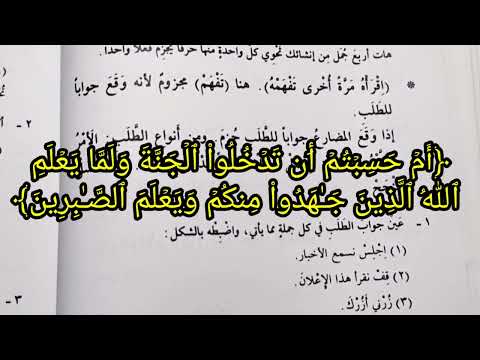 هات أربعَ جُمَل مِن إنشائك تَحْوِي كلُّ واحدةٍ منها حرفاً يجزِم فعلاً واحداً.
* (اِقْرَأْهُ مَرَّةً أُخْرى تَفْهَمْهُ). هنا (تَفْهَمْ) مجزومٌ لأنه وَقَعَ جواباً
للطَلَبِ.
٢ -
إذا وَقَعَ المضارعُ جواباً للطَلَبِ جُزِمَ. ومِن أنواعِ الطَّلَبِ الأَمْرُ
﴿أَمْ حَسِبْتُمْ أَن تَدْخُلُوا۟ ٱلْجَنَّةَ وَلَمَّا يَعْلَمِ
ٱللَّهُ ٱلَّذِينَ جَـٰهَدُوا۟ مِنكُمْ وَيَعْلَمَ ٱلصَّـٰبِرِينَ﴾
١ - عَيِّن جوابَ الطَّلَبِ في كل جملةٍ مما يأتي، واضبِطْه بالشكل:
(١) اِجْلِسْ نسمع الأخبار.
(٢) قِفْ نقرأ هذا الإعْلانَ.
(٣) زُرْنِي أَزُرْكَ.
٣ -